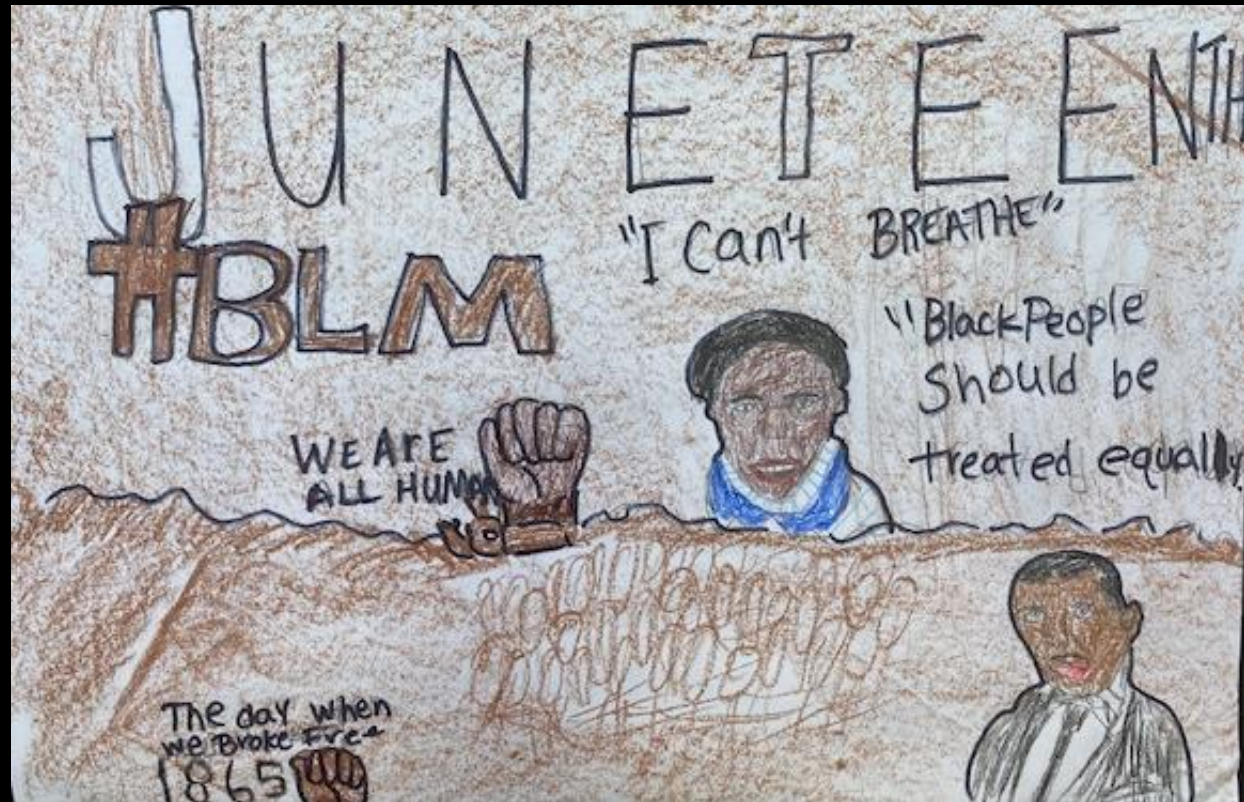 JUNETEENTH
#BLM
"I Can't BREATHE"
"Black People
Should be
treated equally
WE ARE
ALL HUMAN
The day when
we Broke Free
1865